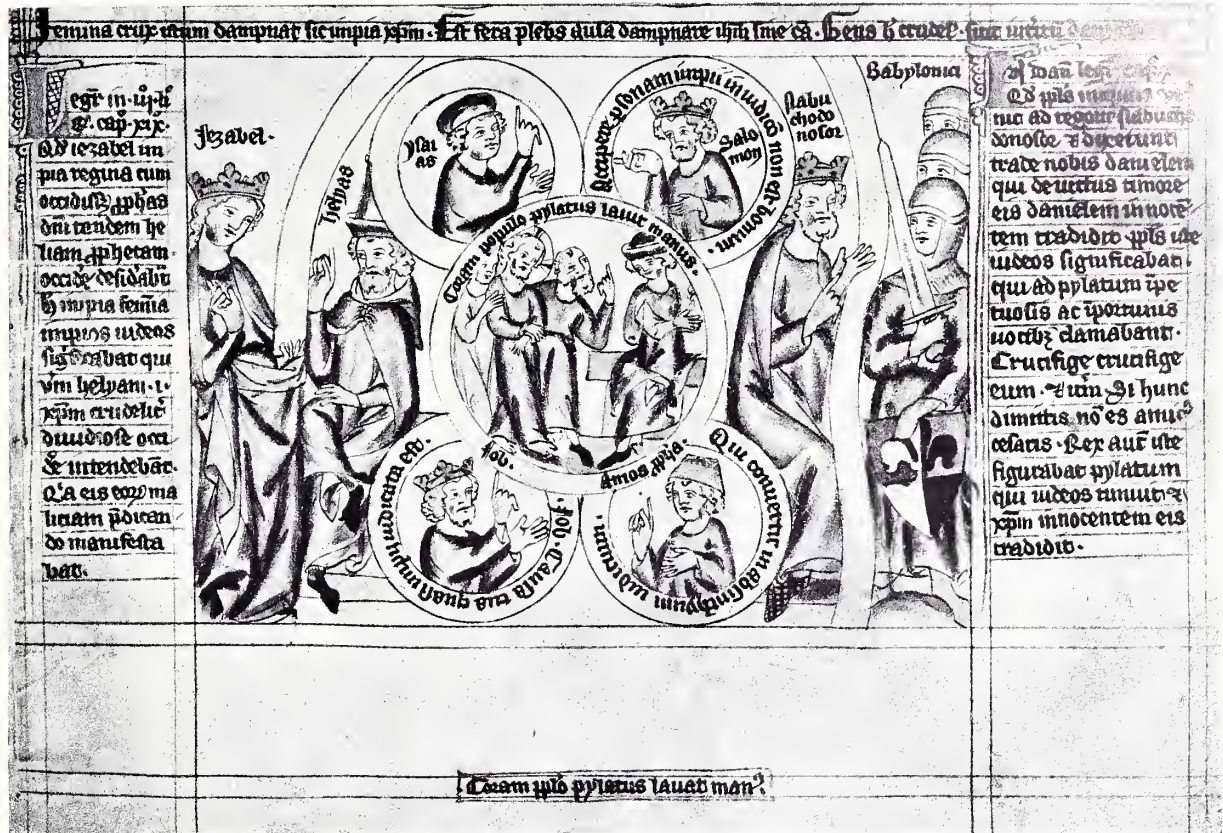 Femina trux istum dampnat sic impia xpm. Est fera plebs ausa dampnare ihm sine ca. Gens h crudel.
Legr in iij. li.
g. cap. xix.
Qd iezabel im
pia regina cum
occidisset pphas
dni tandem he
liam pphetam
occidere desidabt
h impia femina
impios iudeos
sigficabat qui
vm helyam .i.
xpm crudeliter
intendebat.
Qia eis eorum ma
liciam pdican
do manifesta
bat.
Jezabel.
helyas
Ysai
as
Accipere psonam impii in iudicio non est bonum.
Salo
mon
Nabu
chodo
nosor
Babylonici
Coram populo pylatus lavit manus.
Job.
Amos ppha.
Job. Causa tua quasi impii iudicata est.
Qui convertitis in absinthium iudicium.
nit ad regem Nabucho
donosor et dixerunt
trade nobis danielem
qui devictus timore
eis danielem innocen
tem tradidit. ppls iste
iudeos significabat
qui ad pylatum ipe
tuosis ac iportunis
vocibz clamabant.
Crucifige crucifige
eum. et iterum. Si hunc
dimittis no es amic9
cesaris. Rex aut iste
figurabat pylatum
qui iudeos timuit et
xpm innocentem eis
tradidit.
Coram pplo pylatus lavat man9.